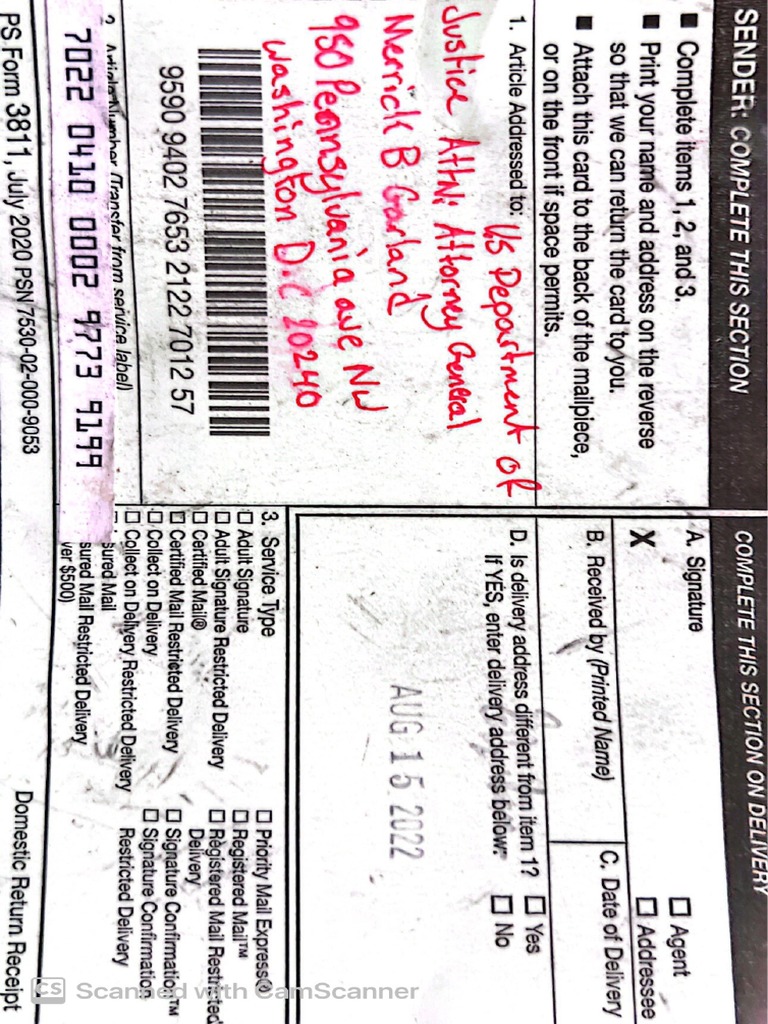 SENDER: COMPLETE THIS SECTION
■ Complete items 1, 2, and 3.
■ Print your name and address on the reverse
so that we can return the card to you.
■ Attach this card to the back of the mailpiece,
or on the front if space permits.
1. Article Addressed to:
US Department of
Justice Attn: Attorney General
Merrick B Garland
950 Pennsylvania ave NW
Washington D.C 20240
9590 9402 7653 2122 7012 57
2. Article Number (Transfer from service label)
7022 0410 0002 9773 9199
PS Form 3811, July 2020 PSN 7530-02-000-9053
COMPLETE THIS SECTION ON DELIVERY
A. Signature
X
☐ Agent
☐ Addressee
B. Received by (Printed Name)
C. Date of Delivery
D. Is delivery address different from item 1? ☐ Yes
If YES, enter delivery address below: ☐ No
AUG 15 2022
3. Service Type
☐ Adult Signature
☐ Adult Signature Restricted Delivery
☐ Certified Mail®
☐ Certified Mail Restricted Delivery
☐ Collect on Delivery
☐ Collect on Delivery Restricted Delivery
sured Mail
sured Mail Restricted Delivery
ver $500)
☐ Priority Mail Express®
☐ Registered Mail™
☐ Registered Mail Restricted
Delivery
☐ Signature Confirmation™
☐ Signature Confirmation
Restricted Delivery
Domestic Return Receipt
CS Scanned with CamScanner